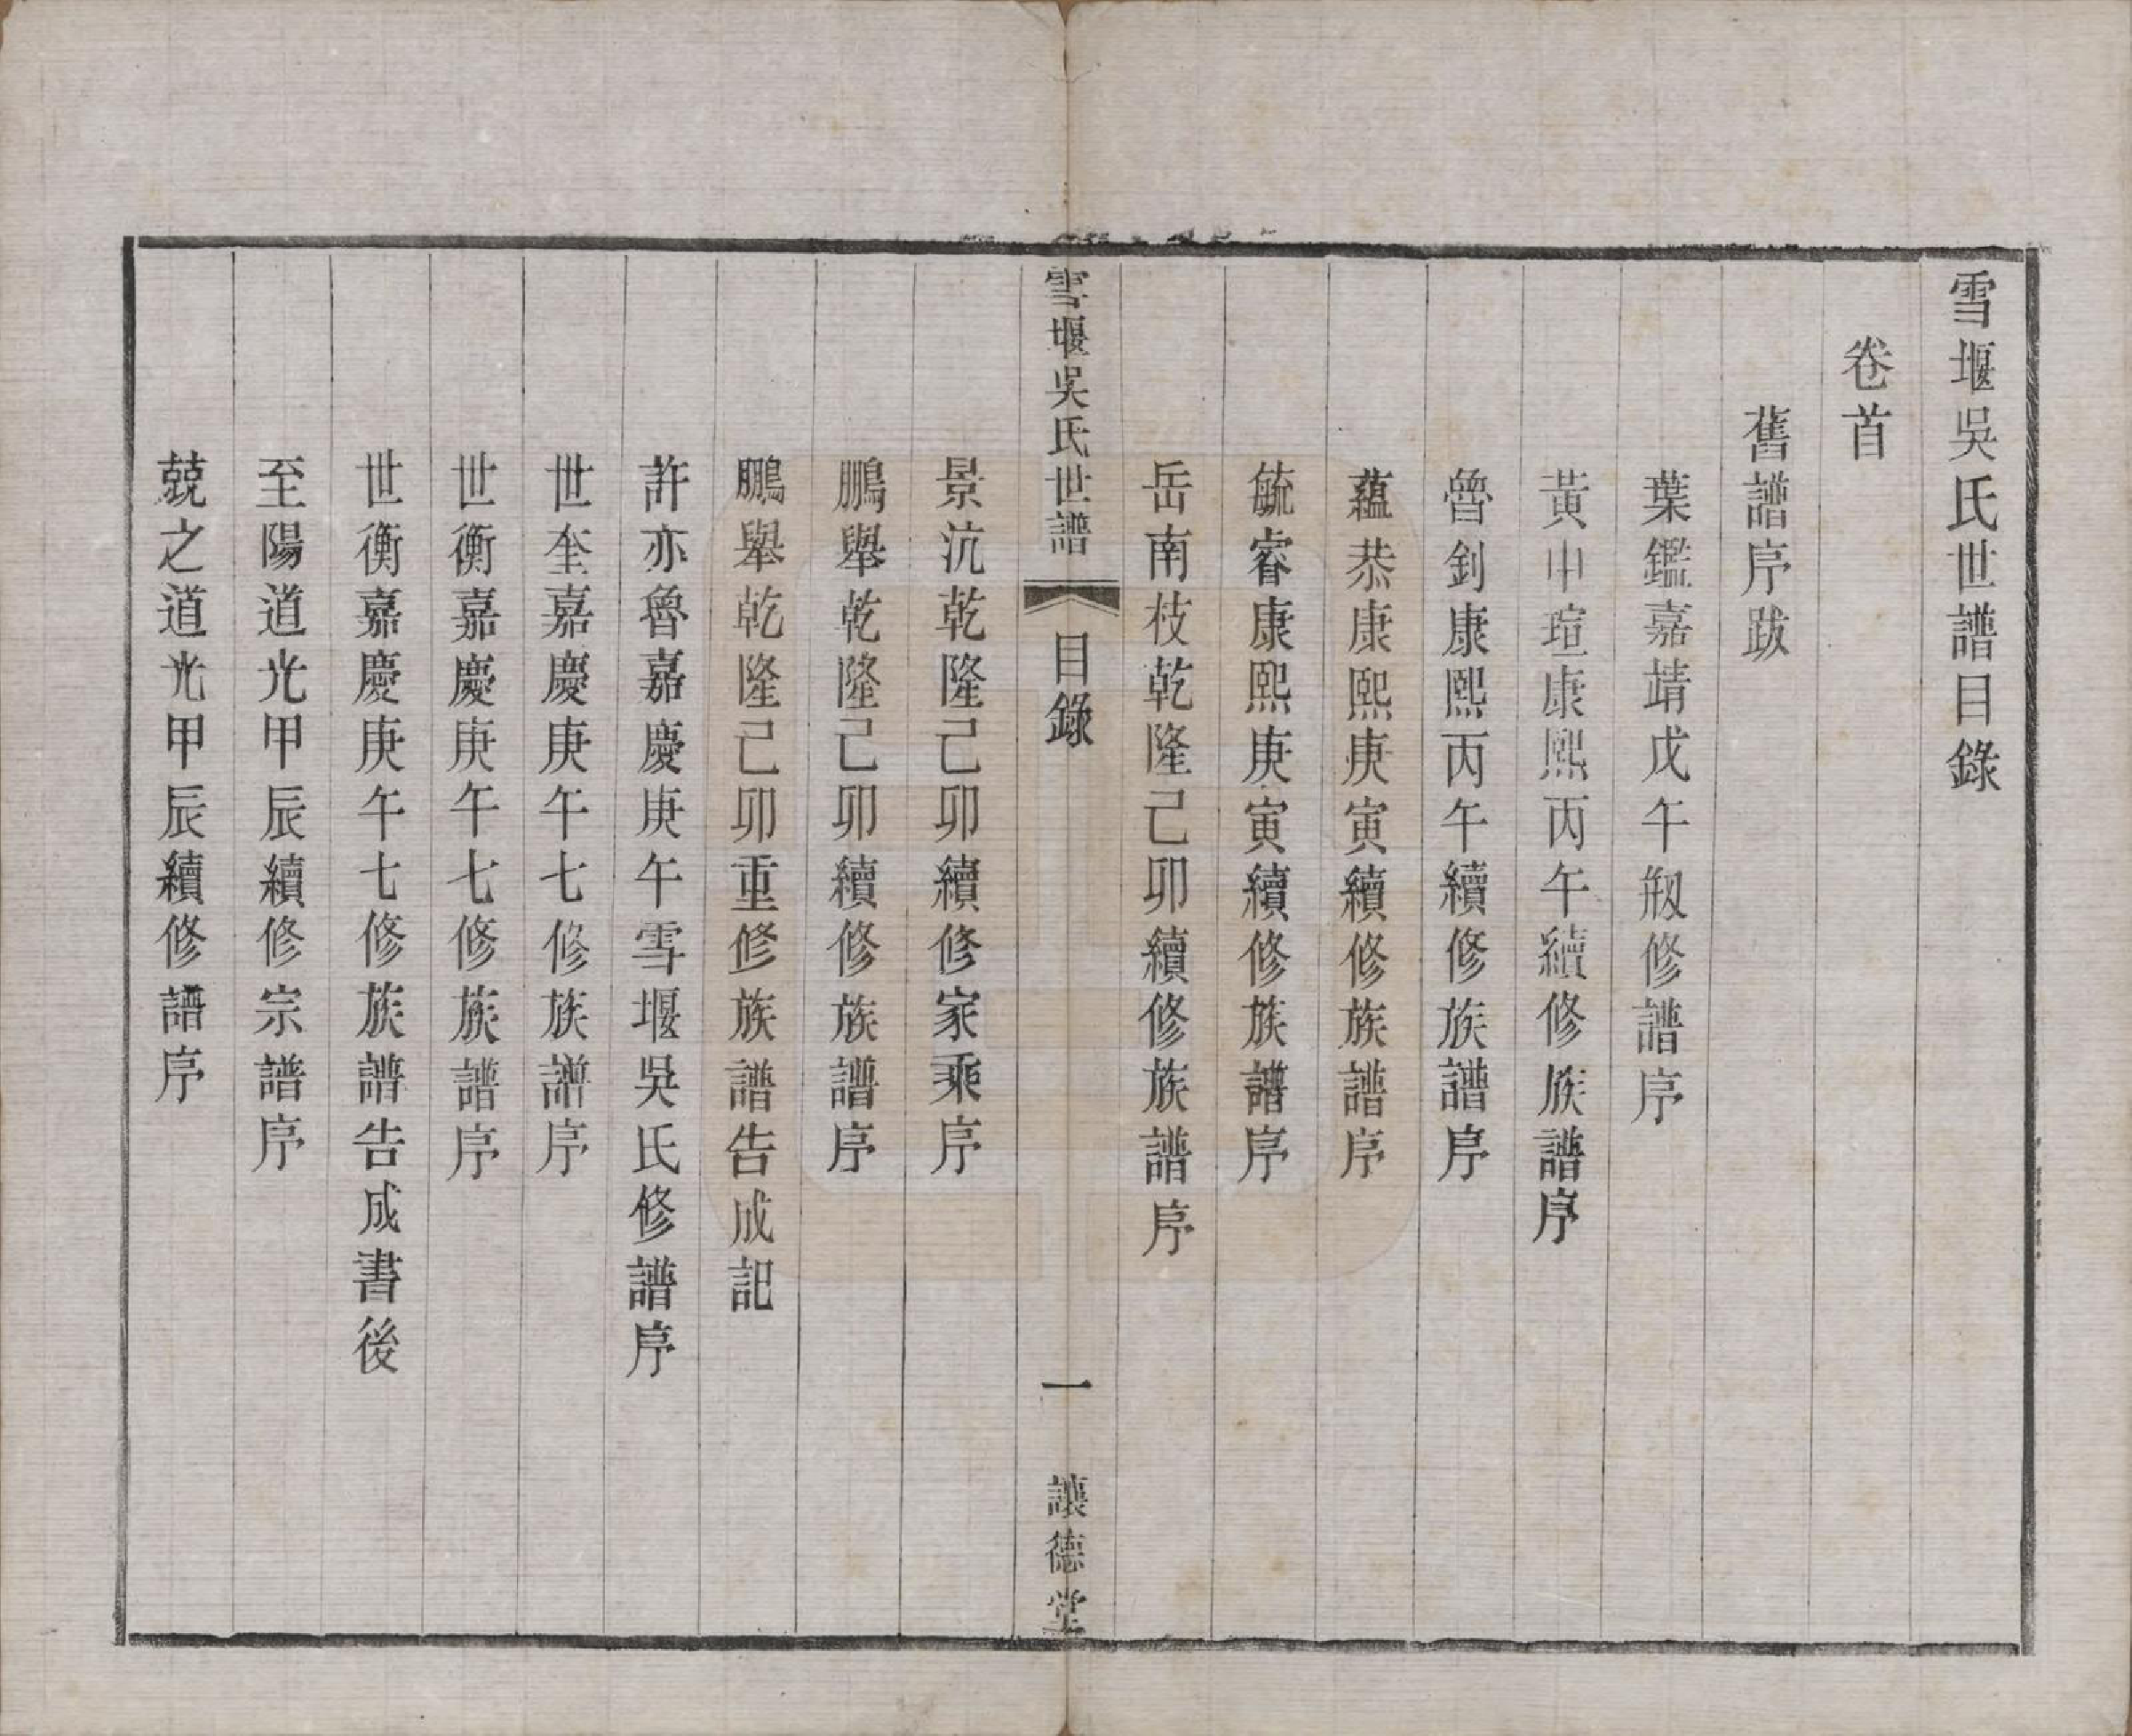 雪堰吳氏世譜目錄
卷首
舊譜序跋
葉鑑嘉靖戊午刱修譜序
黃中瑄康熙丙午續修族譜序
魯釗康熙丙午續修族譜序
蘊恭康熙庚寅續修族譜序
毓睿康熙庚寅續修族譜序
岳南枝乾隆己卯續修族譜序
雪堰吳氏世譜
目錄
一
讓德堂
景沆乾隆己卯續修家乘序
鵬舉乾隆己卯續修族譜序
鵬舉乾隆己卯重修族譜告成記
許亦魯嘉慶庚午雪堰吳氏修譜序
世奎嘉慶庚午七修族譜序
世衡嘉慶庚午七修族譜序
世衡嘉慶庚午七修族譜告成書後
至陽道光甲辰續修宗譜序
兢之道光甲辰續修譜序